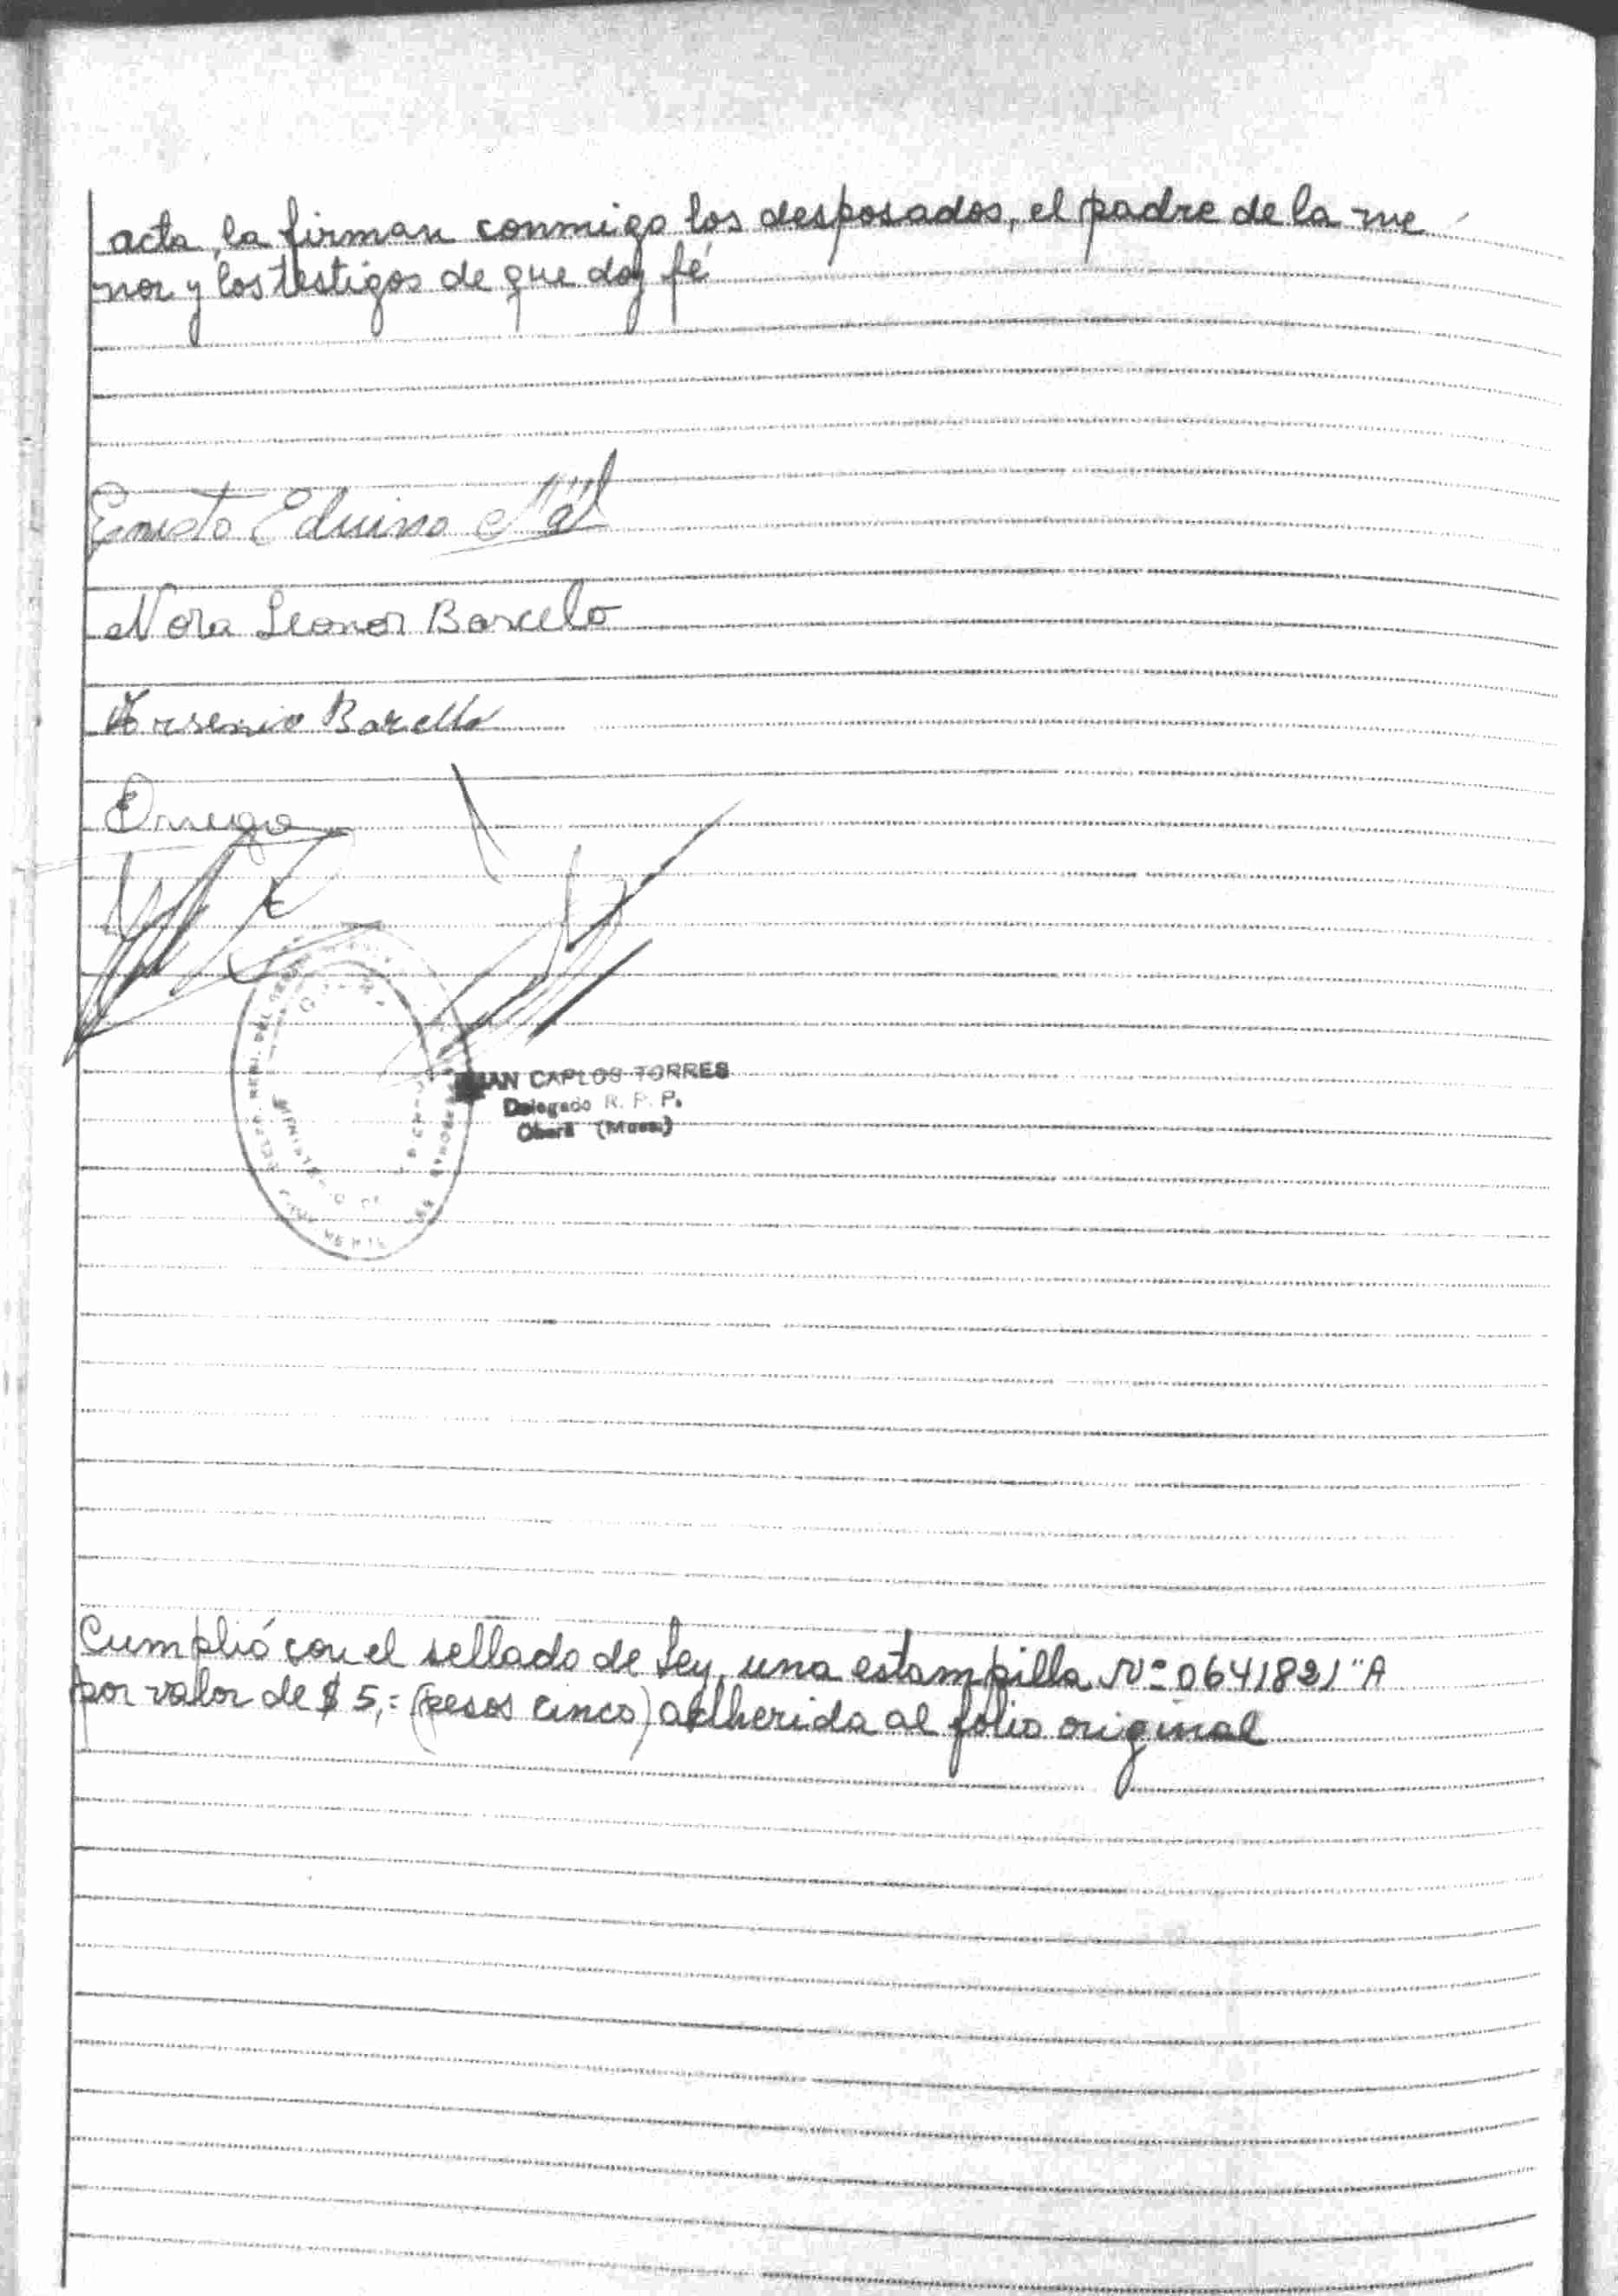 acta, la firman conmigo los desposados, el padre de la me
nor y los testigos de que doy fé
Ernesto Eduino
Nora Leonor Barcelo
Arsenio Barcello
CARLOS TORRES
Delegado R. P. P.
Oberá (Mnes.)
Cumplió con el sellado de Ley, una estampilla Nº 0641821 "A
por valor de $ 5,= (pesos cinco) adherida al folio original